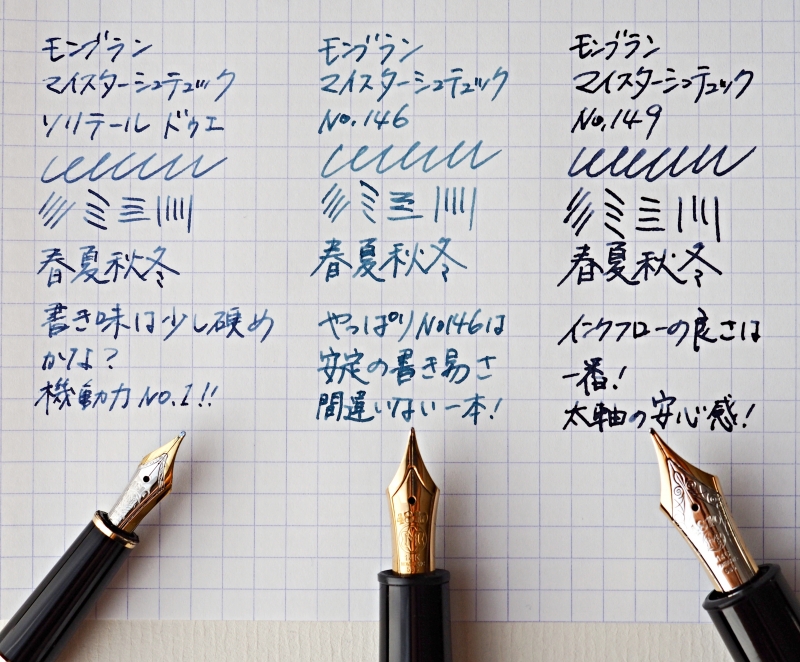 モンブラン
マイスターシュテュック
ソリテール ドゥエ
春夏秋冬
書き味は少し硬め
かな?
機動力No.1!!
モンブラン
マイスターシュテュック
No.146
春夏秋冬
やっぱりNo146は
安定の書き易さ
間違いない一本!
モンブラン
マイスターシュテュック
No.149
春夏秋冬
インクフローの良さは
一番!
太軸の安心感!